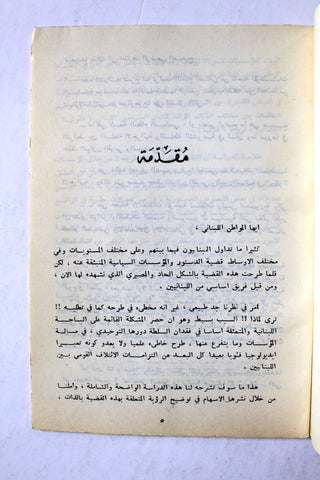 مُقَدّمَة
ايها المواطن اللبناني ،
كثيرا ما تداول اللبنانيون فيما بينهم وعلى مختلف المستويات وفي
مختلف الاوساط قضية الدستور والمؤسسات السياسية المنبثقة عنه ، لكن
قلما طرحت هذه القضية بالشكل الحاد والمصيري الذي نشهده لها الان ،
ومن قبل فريق اساسي من اللبنانيين .
امر في نظرنا جد طبيعي ، غير انه مخطىء في طرحه كما في تطلبه !!
ترى لماذا !! السبب بسيط وهو ان حصر المشكلة القائمة على الساحة
اللبنانية والمتمثلة اساسا في فقدان السلطة دورها التوحيدي ، في مسألة
المؤسسات وما يتفرع عنها ، طرح خاطىء علميا ولا يعدو كونه تعبيرا
ايديولوجيا فئويا بعيدا كل البعد عن التزامات الائتلاف القومي بين
اللبنانيين .
هذا ما سوف نشرحه لنا هذه الدراسة الواضحة والشاملة ، واملنا
من خلال نشرها الاسهام في توضيح الرؤية المتعلقة بهذه القضية بالذات ،
٥